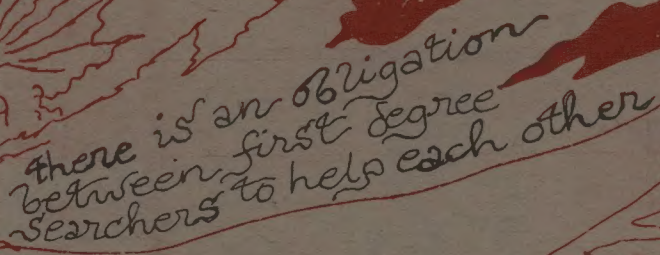 there is an obligation
between first degree
searchers to help each other